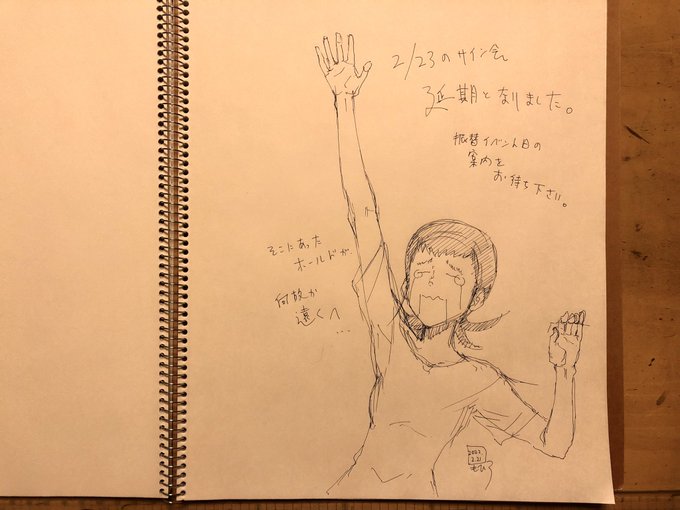 2/23のサイン会
延期となりました。
振替イベント日の
案内を
お待ち下さい。
そこにあった
ホールドが
何故か
遠くへ
...
2022
2.21
もひろ